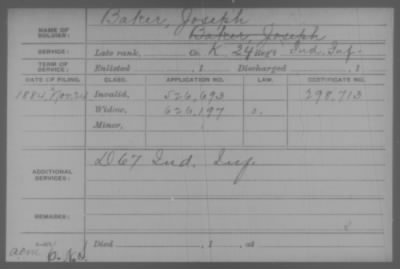 Baker, Joseph
NAME OF SOLDIER: Baker, Joseph
SERVICE: Late rank, Co. K 24 Reg't Ind. Inf.
TERM OF SERVICE: Enlisted , 1 Discharged , 1
DATE OF FILING. CLASS. APPLICATION NO. LAW. CERTIFICATE NO.
1884, Nov. 24 Invalid, 526,693 298,713
Widow, 626,197
Minor, ,
ADDITIONAL SERVICES: D 67 Ind. Inf.
REMARKS:
Died , 1 , at